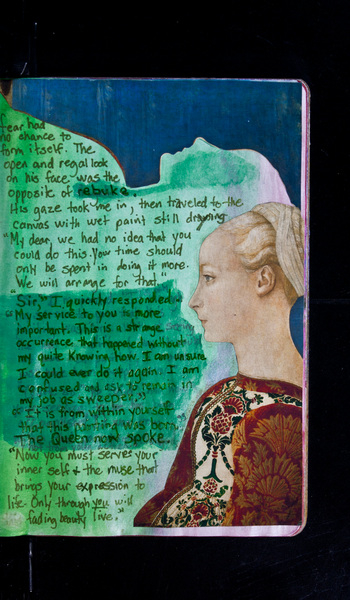 fear had
no chance to
form itself. The
open and regal look
on his face was the
opposite of rebuke.
His gaze took me in, then traveled to the
canvas with wet paint still drying.
"My dear, we had no idea that you
could do this. Your time should
only be spent in doing it more.
We will arrange for that."
"Sir," I quickly responded
"My service to you is more
important. This is a strange
occurrence that happened without
my quite knowing how. I am unsure
I could ever do it again. I am
confused and ask to remain in
my job as sweeper."
"It is from within yourself
that this painting was born."
The Queen now spoke.
"Now you must serve your
inner self & the muse that
brings your expression to
life. Only through you will
fading beauty live."